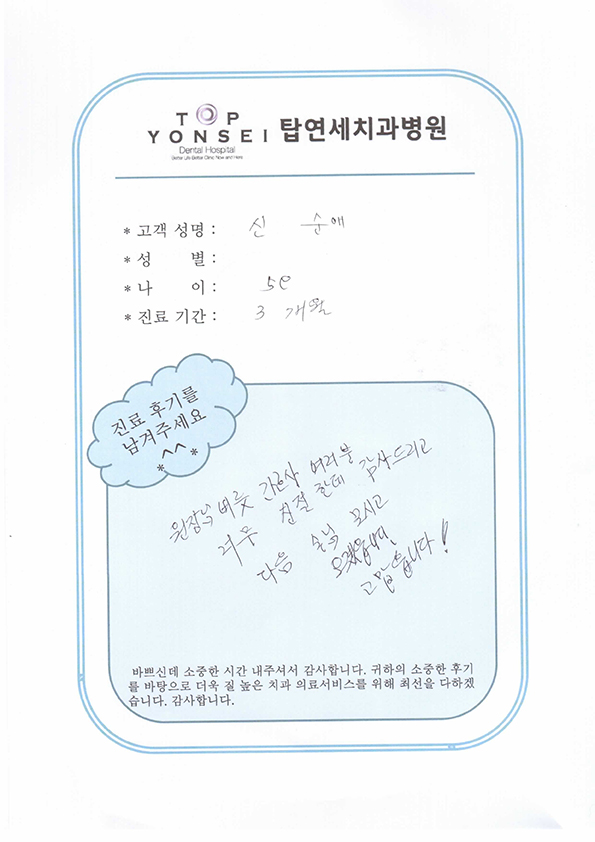 TOP
YONSEI 탑연세치과병원
Dental Hospital
Better Life Better Clinic Now and Here
* 고객 성명 : 신 순애
* 성 별 :
* 나 이 : 50
* 진료 기간 : 3 개월
진료 후기를
남겨주세요
*^^*
원장님 비롯 간호사 여러분
너무 친절 한데 감사드리고
다음 손님 모시고
오겠읍니다.
고맙습니다!
바쁘신데 소중한 시간 내주셔서 감사합니다. 귀하의 소중한 후기
를 바탕으로 더욱 질 높은 치과 의료서비스를 위해 최선을 다하겠
습니다. 감사합니다.